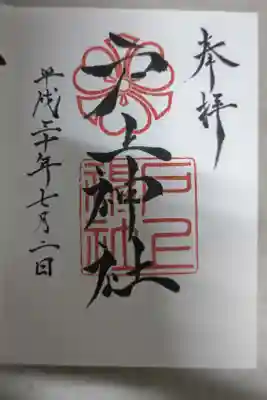 奉拝
戸上神社
戸上
神社
平成三十年七月二日